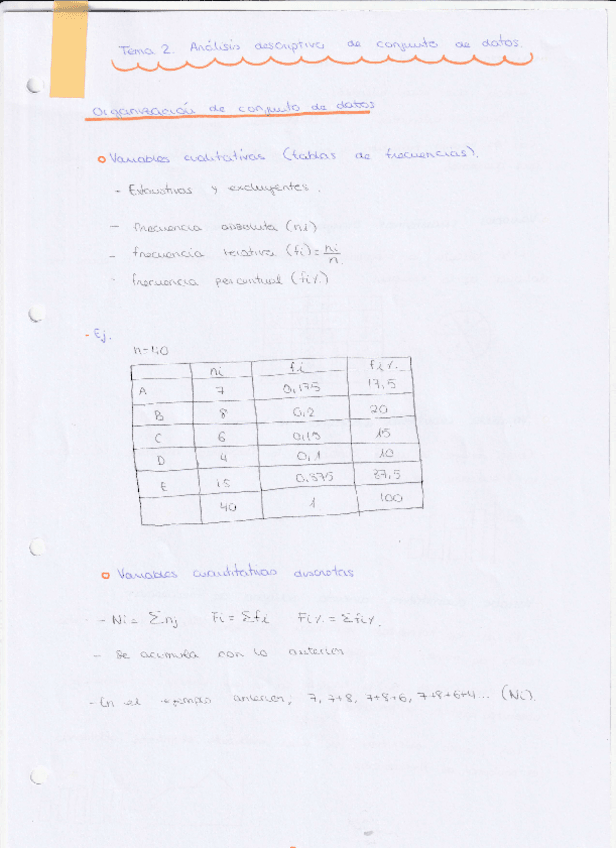 Tema 2. Análisis descriptivo de conjunto de datos.
Organización de conjunto de datos
o Variables cualitativas (tablas de frecuencias).
- Exhaustivas y excluyentes.
- Frecuencia absoluta (ni)
- frecuencia relativa (fi) = ni/n
- frecuencia porcentual (fi%)
- Ej.
n=40
ni fi fi%
A 7 0,175 17,5
B 8 0,2 20
C 6 0,15 15
D 4 0,1 10
E 15 0,375 37,5
40 1 100
o Variables cuantitativas discretas
- Ni = Σnj Fi = Σfi Fi% = Σfi%
- Se acumula con lo anterior
- En el ejemplo anterior; 7, 7+8, 7+8+6, 7+8+6+4... (Ni).